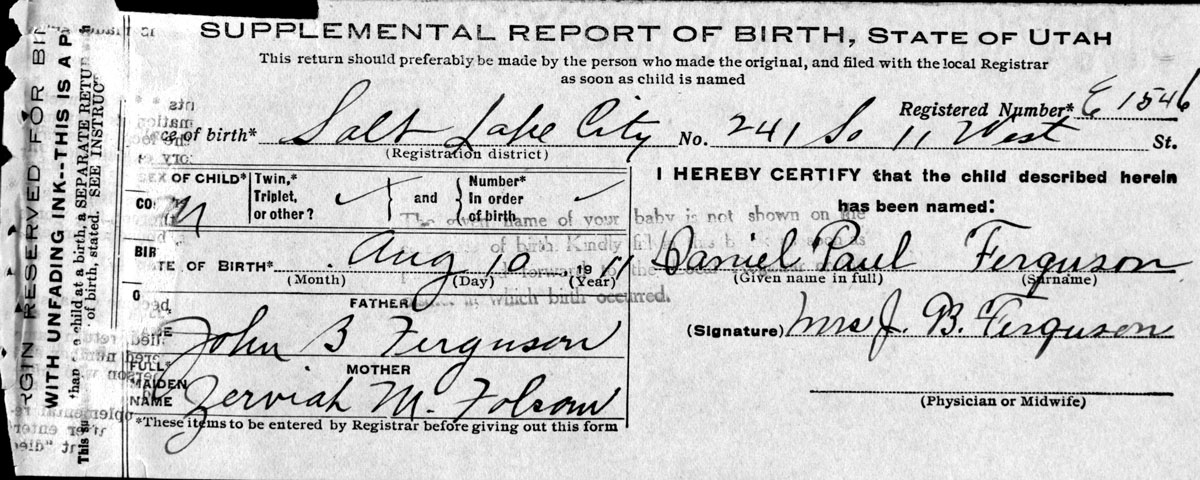 SUPPLEMENTAL REPORT OF BIRTH, STATE OF UTAH
This return should preferably be made by the person who made the original, and filed with the local Registrar
as soon as child is named
Registered Number* E 1546
of birth* Salt Lake City No. 241 So 11 West St.
(Registration district)
SEX OF CHILD* M
Twin,*
Triplet,
or other?
and
Number*
In order
of birth
I HEREBY CERTIFY that the child described herein
has been named:
The given name of your baby is not shown on the
of birth. Kindly
in which birth occurred.
DATE OF BIRTH* Aug 10, 1911
(Month) (Day) (Year)
Daniel Paul Ferguson
(Given name in full) (Surname)
FATHER
John B Ferguson
(Signature) Mrs J. B. Ferguson
MOTHER
FULL*
MAIDEN
NAME
Zerviah M. Folsom
(Physician or Midwife)
*These items to be entered by Registrar before giving out this form
RGIN RESERVED FOR BIN
WITH UNFADING INK--THIS IS A P
than child at a birth, a SEPARATE RETU
of birth, stated. SEE INSTRUCT